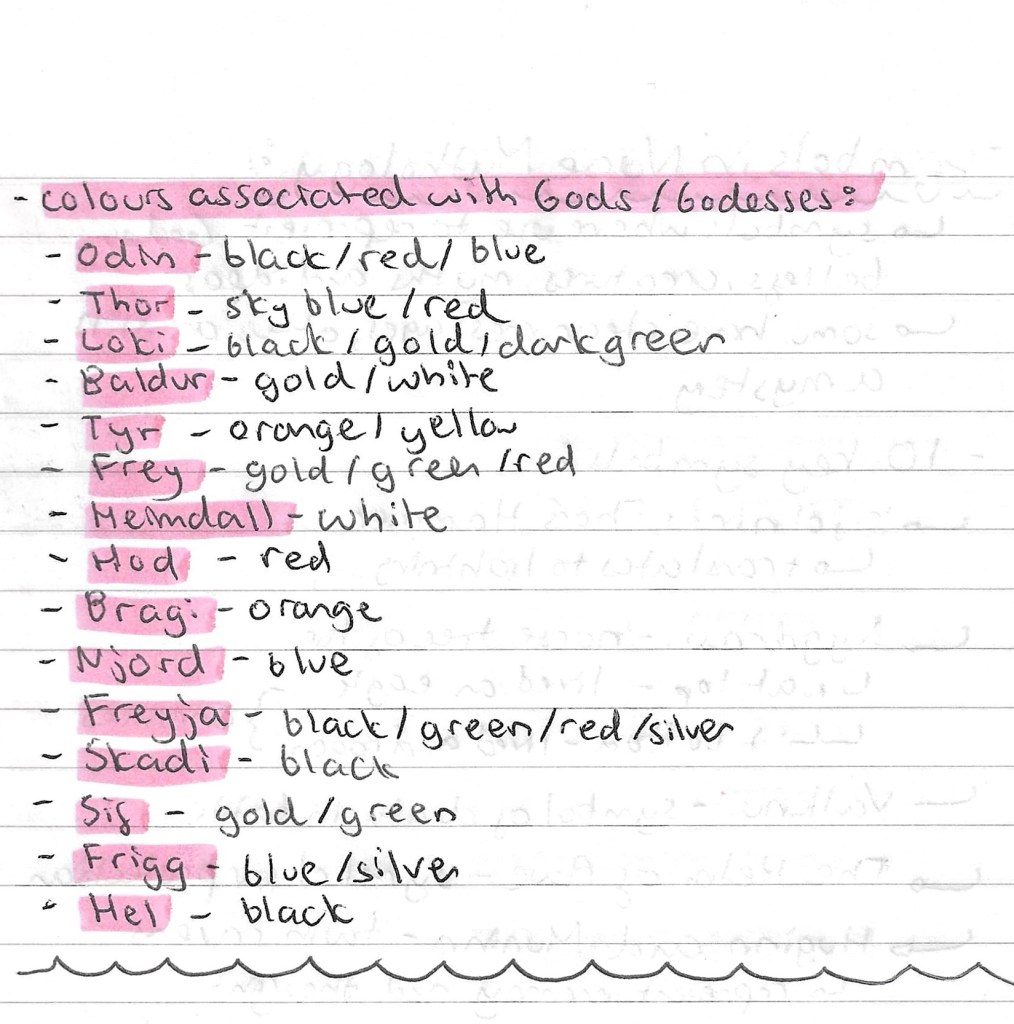 - colours associated with Gods / Godesses:
- Odin - black/red/ blue
- Thor - sky blue /red
- Loki - black / gold / dark green
- Baldur - gold / white
- Tyr - orange / yellow
- Frey - gold / green /red
- Heimdall - white
- Hod - red
- Bragi - orange
- Njord - blue
- Freyja - black / green /red /silver
- Skadi - black
- Sif - gold /green
- Frigg - blue /silver
- Hel - black